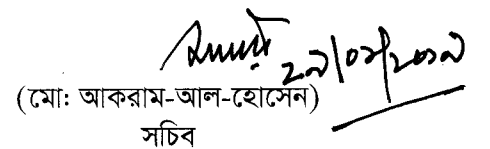 ২৯/০৯/২০১৯
(মো: আকরাম-আল-হোসেন)
সচিব